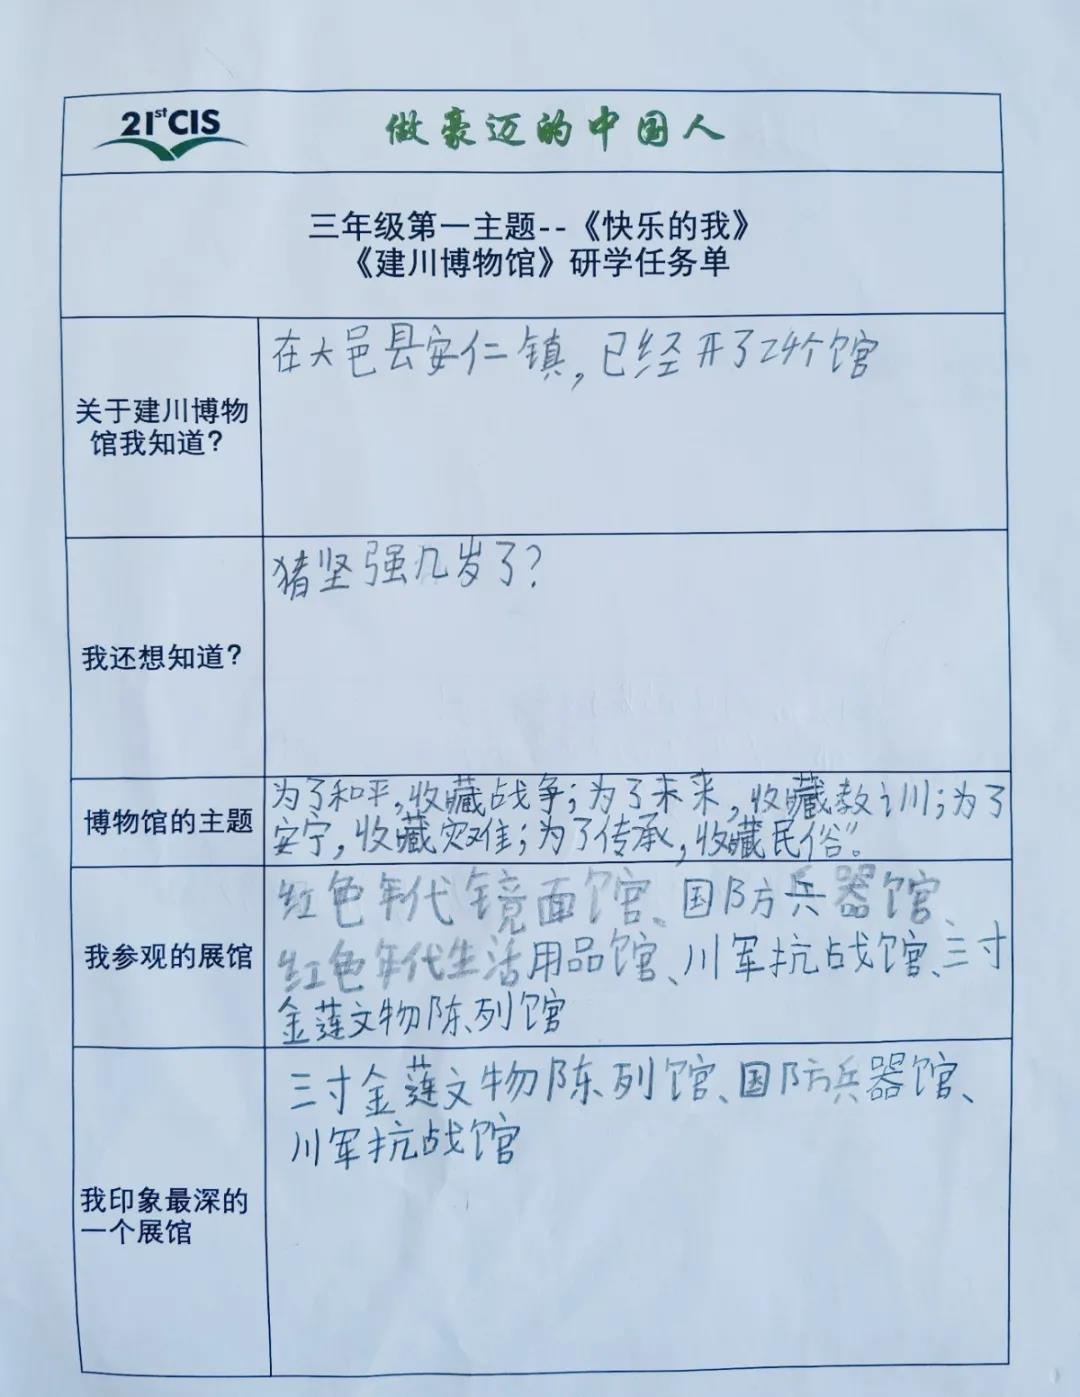 21stCIS
做豪迈的中国人
三年级第一主题--《快乐的我》
《建川博物馆》研学任务单
关于建川博物
馆我知道？
在大邑县安仁镇，已经开了24个馆
我还想知道？
猪坚强几岁了？
博物馆的主题
为了和平，收藏战争；为了未来，收藏教训；为了
安宁，收藏灾难；为了传承，收藏民俗”。
我参观的展馆
红色年代镜面馆、国防兵器馆、
红色年代生活用品馆、川军抗战馆、三寸
金莲文物陈列馆
我印象最深的
一个展馆
三寸金莲文物陈列馆、国防兵器馆、
川军抗战馆